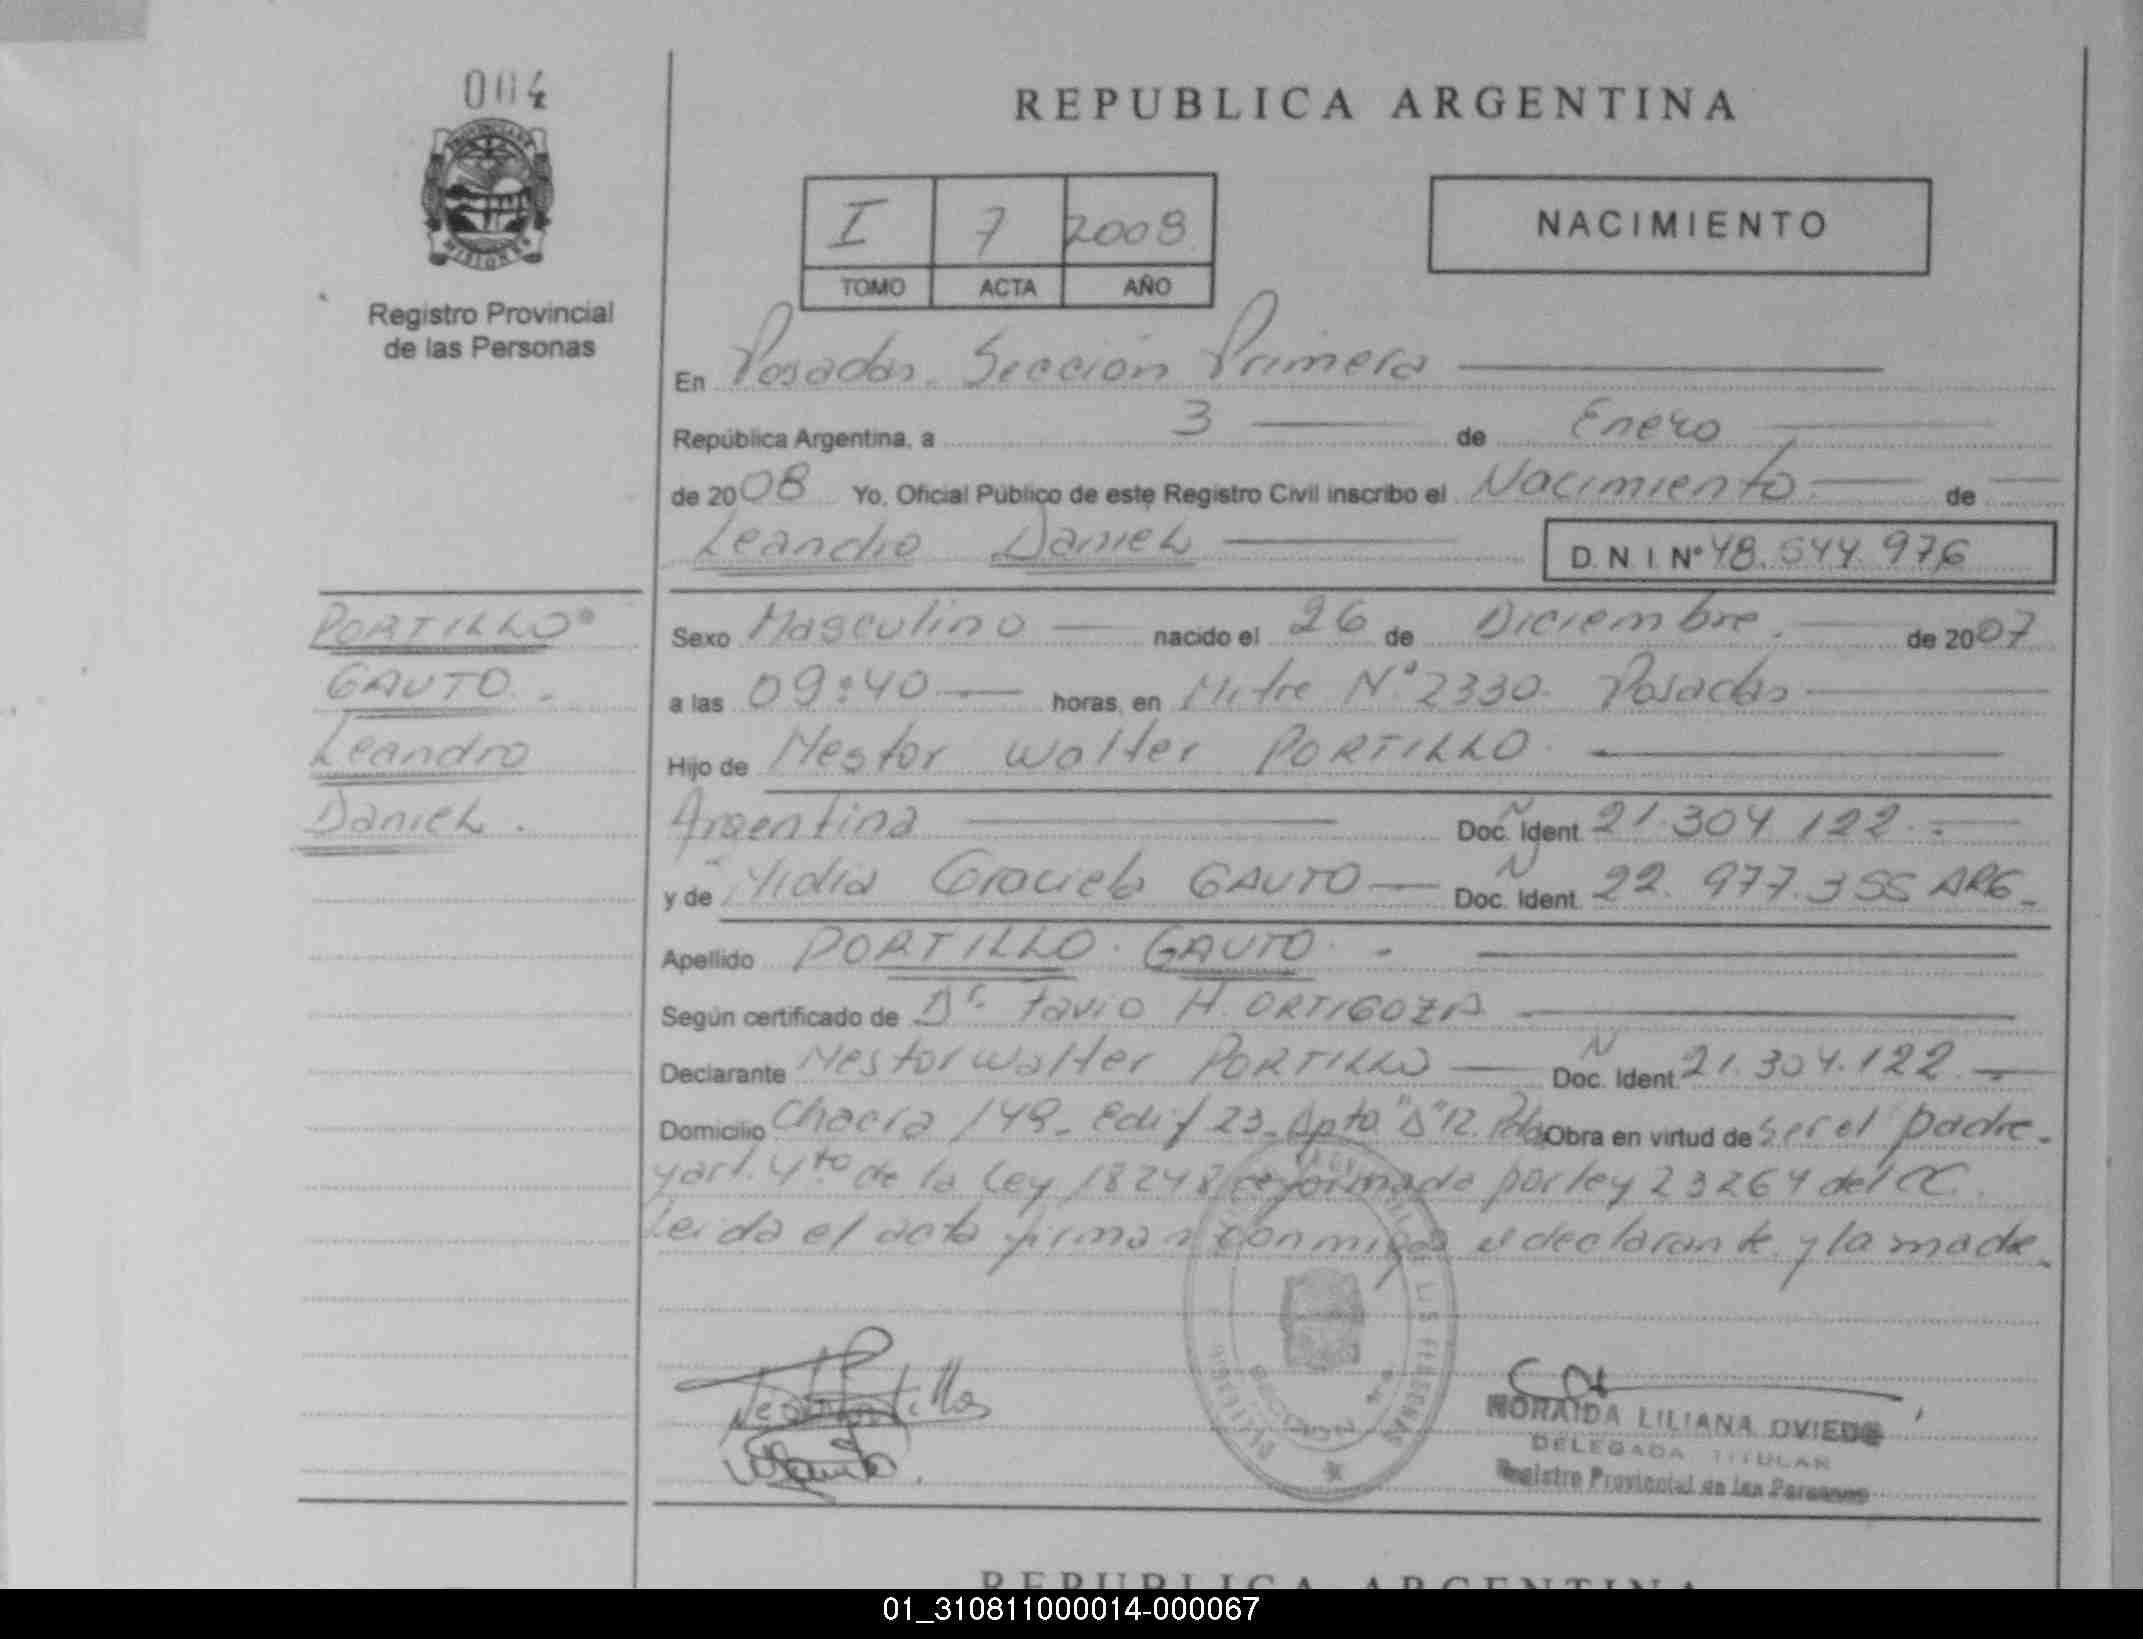 004
PROVINCIA DE
MISIONES
Registro Provincial
de las Personas
REPUBLICA ARGENTINA
I 7 2008
TOMO ACTA AÑO
NACIMIENTO
En Posadas. Sección Primera
República Argentina, a 3 de Enero
de 2008 Yo, Oficial Público de este Registro Civil inscribo el Nacimiento de
Leandro Daniel D. N. I. Nº 48.544.976
PORTILLO
GAUTO
Leandro
Daniel.
Sexo Masculino nacido el 26 de Diciembre. de 2007
a las 09:40 horas, en Mitre Nº 2330. Posadas
Hijo de Nestor Walter PORTILLO
Argentina Doc. Ident. 21.304.122
y de Graciela GAUTO Doc. Ident. 22.977.355 ARG
Apellido PORTILLO GAUTO
Según certificado de Dr. Favio H. ORTIGOZA
Declarante Nestor Walter PORTILLO Doc. Ident. 21.304.122
Domicilio Chacra 149- Edif 23- Dpto Obra en virtud de ser el padre-
y art. 4to de la Ley 18248 reformada por ley 23264 del CC.
Leida el acta firman conmigo el declarante y la madre
NORAIDA LILIANA OVIEDO
DELEGADA TITULAR
Registro Provincial de las Personas
REPUBLICA ARGENTINA
01_310811000014-000067